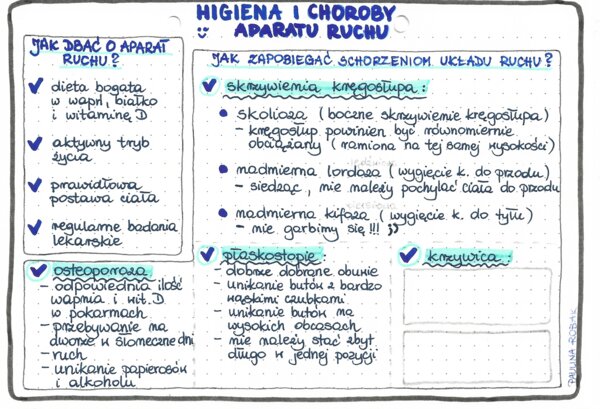 HIGIENA I CHOROBY
APARATU RUCHU
JAK DBAĆ O APARAT
RUCHU?
dieta bogata
w wapń, białko
i witaminę D
aktywny tryb
życia
prawidłowa
postawa ciała
regularne badania
lekarskie
JAK ZAPOBIEGAĆ SCHORZENIOM UKŁADU RUCHU?
skrzywienia kręgosłupa:
skolioza (boczne skrzywienie kręgosłupa)
- kręgosłup powinien być równomiernie
obciążany (ramiona na tej samej wysokości)
nadmierna lordoza (wygięcie k. do przodu)
- siedząc, nie należy pochylać ciała do przodu
nadmierna kifoza (wygięcie k. do tyłu)
- nie garbimy się!!! ;)
osteoporoza
- odpowiednia ilość
wapnia i wit. D
w pokarmach
- przebywanie na
dworze w słoneczne dni
- ruch
- unikanie papierosów
i alkoholu
płaskostopie:
- dobrze dobrane obuwie
- unikanie butów z bardzo
wąskimi czubkami
- unikanie butów na
wysokich obcasach
- nie należy stać zbyt
długo w jednej pozycji
krzywica:
PAULINA ROBAK